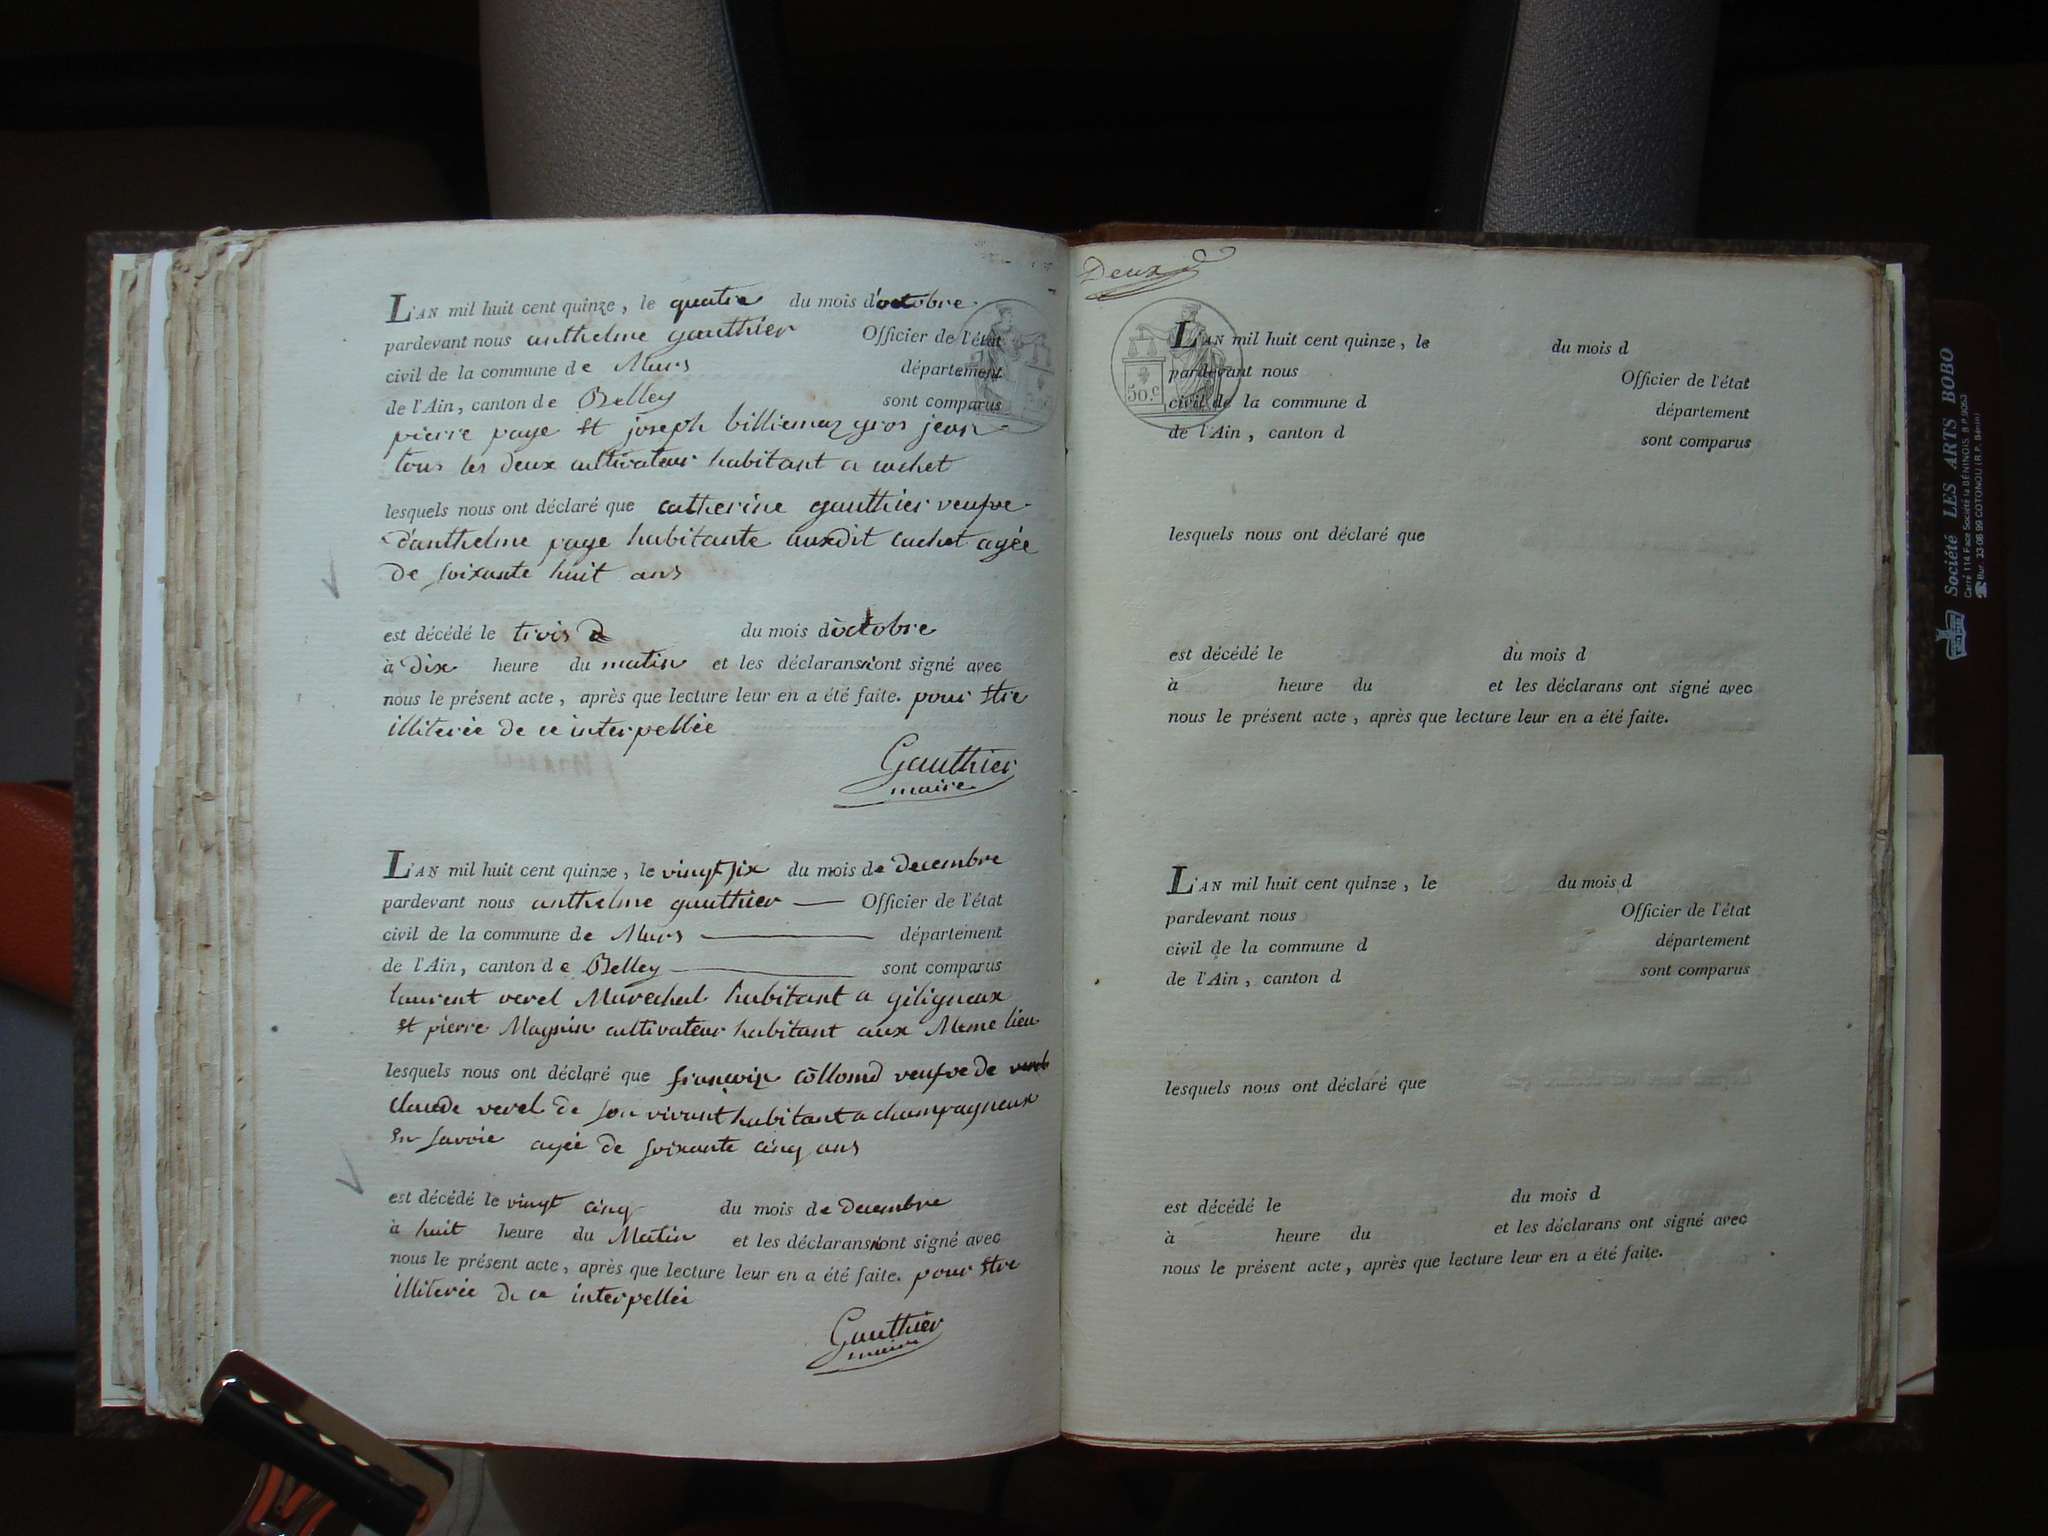 L'AN mil huit cent quinze, le quatre du mois d'octobre
pardevant nous anthelme gauthier Officier de l'état
civil de la commune de Murs département
de l'Ain, canton de Belley sont comparus
pierre page et joseph billiemaz gros jean
tous les deux cultivateur habitant a cuchet
lesquels nous ont déclaré que catherine gauthier veufve
d'anthelme page habitante auxdit cuchet agée
de soixante huit ans
est décédé le trois du mois d'octobre
à dix heure du matin et les déclarans n'ont signé avec
nous le présent acte, après que lecture leur en a été faite. pour etre
illiterée de ce interpellée
Gauthier
maire
L'AN mil huit cent quinze, le vingt six du mois de decembre
pardevant nous anthelme gauthier Officier de l'état
civil de la commune de Murs département
de l'Ain, canton de Belley sont comparus
laurent verel Marechal habitant a giligneux
et pierre Magnin cultivateur habitant aux Meme lieu
lesquels nous ont déclaré que françoise collomd veufve de
claude verel de son vivant habitant a champagneux
en savoie agée de soixante cinq ans
est décédé le vingt cinq du mois de decembre
à huit heure du Matin et les déclarans n'ont signé avec
nous le présent acte, après que lecture leur en a été faite. pour etre
illiterée de ce interpellée
Gauthier
maire
Deux
50.c
L'AN mil huit cent quinze, le du mois d
pardevant nous Officier de l'état
civil de la commune d département
de l'Ain, canton d sont comparus
lesquels nous ont déclaré que
est décédé le du mois d
à heure du et les déclarans ont signé avec
nous le présent acte, après que lecture leur en a été faite.
L'AN mil huit cent quinze, le du mois d
pardevant nous Officier de l'état
civil de la commune d département
de l'Ain, canton d sont comparus
lesquels nous ont déclaré que
est décédé le du mois d
à heure du et les déclarans ont signé avec
nous le présent acte, après que lecture leur en a été faite.
Société LES ARTS BOBO
Carré 114 Face Société la BÉNINOIS B.P. 9053
Bur. 33-06-99 COTONOU (R.P. Bénin)